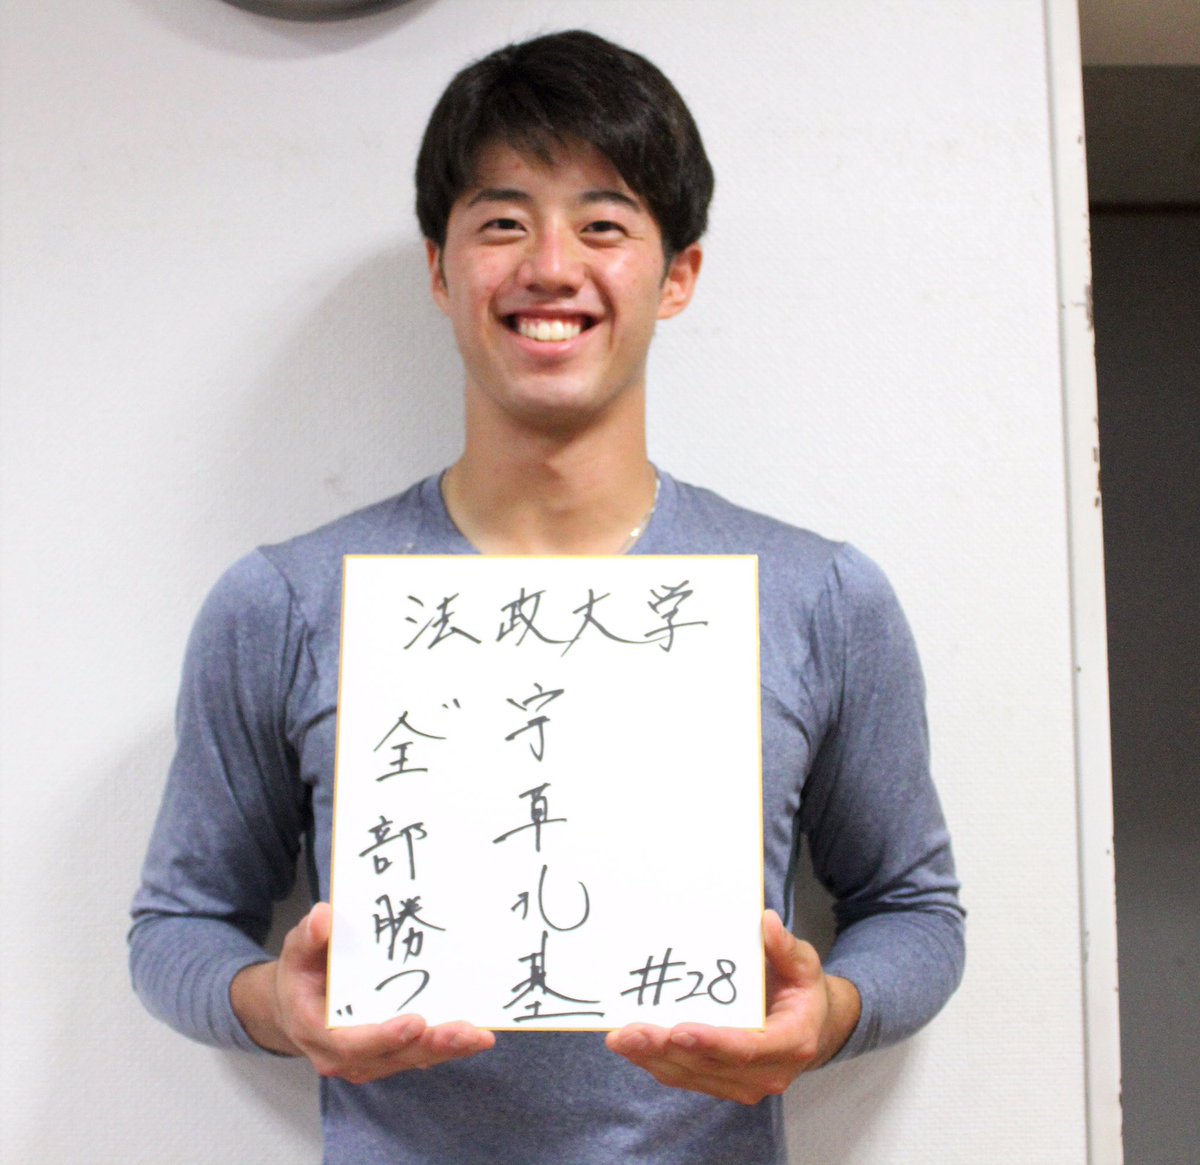 法政大学
宇草孔基
#28
"全部勝つ"